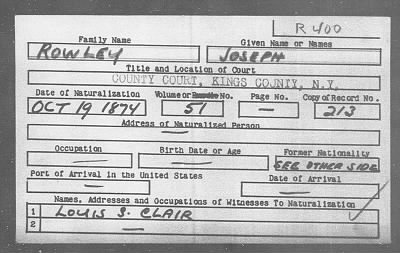 R 400
Family Name Given Name or Names
ROWLEY JOSEPH
Title and Location of Court
COUNTY COURT, KINGS COUNTY, N.Y.
Date of Naturalization Volume or Bundle No. Page No. Copy of Record No.
OCT 19 1874 51 — 213
Address of Naturalized Person
—
Occupation Birth Date or Age Former Nationality
— — SEE OTHER SIDE
Port of Arrival in the United States Date of Arrival
— —
Names, Addresses and Occupations of Witnesses To Naturalization
1 LOUIS S. CLAIR
2 —